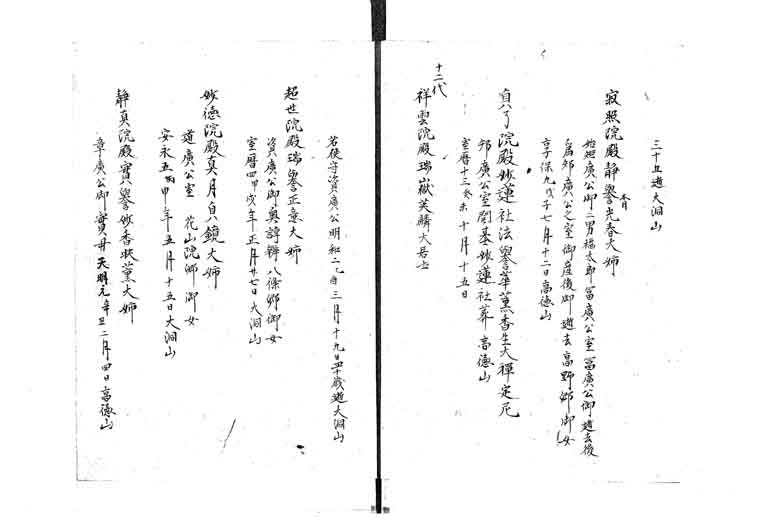 三十五逝大洞山
寂照院殿静誉光春大姉
春月
始矩廣公御二男福太郎冨廣公室冨廣公御逝去後
為矩廣公之室御産後御逝去高野郷御女
享保九戊午七月十二日高徳山
自八了院殿妙蓮社法誉華薫香生大禅定尼
邦廣公室開基妙蓮社葬高徳山
宝暦十三癸未十月十五日
十二代
祥雲院殿瑞嶽英麟大居士
若狭守資廣公明和二乙酉三月十九日四十歳逝大洞山
超世院殿瑞誉正意大姉
資廣公御奥諱辨八條郷御女
宝暦四甲戌年正月廿七日大洞山
妙徳院殿真月自鏡大姉
道廣公室 花山院郷御女
安永五丙申年五月十五日大洞山
静真院殿實誉妙香映薫大姉
章廣公御實母天明元辛丑二月四日高徳山